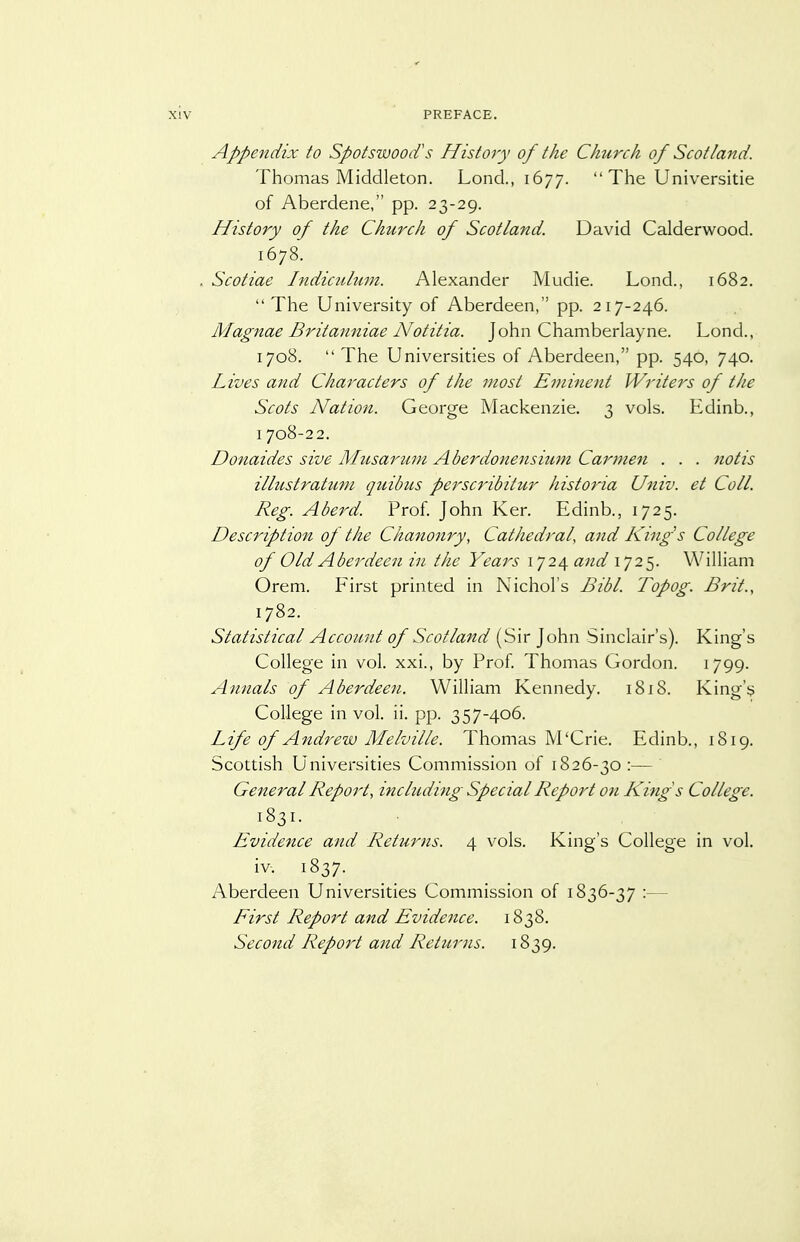 xiv PREFACE.
Appendix to Spotswood's History of the Church of Scotland.
Thomas Middleton. Lond., 1677. “The Universitie
of Aberdene,” pp. 23-29.
History of the Church of Scotland. David Calderwood.
1678.
Scotiae Indiculum. Alexander Mudie. Lond., 1682.
“The University of Aberdeen,” pp. 217-246.
Magnae Britanniae Notitia. John Chamberlayne. Lond.,
1708. “The Universities of Aberdeen,” pp. 540, 740.
Lives and Characters of the most Eminent Writers of the
Scots Nation. George Mackenzie. 3 vols. Edinb.,
1708-22.
Donaides sive Musarum Aberdonensium Carmen . . . notis
illustratum quibus perscribitur historia Univ. et Coll.
Reg. Aberd. Prof. John Ker. Edinb., 1725.
Description of the Chanonry, Cathedral, and King's College
of Old Aberdeen in the Years 1724 and 1725. William
Orem. First printed in Nichol's Bibl. Topog. Brit.,
1782.
Statistical Account of Scotland (Sir John Sinclair's). King's
College in vol. xxi., by Prof. Thomas Gordon. 1799.
Annals of Aberdeen. William Kennedy. 1818. King's
College in vol. ii. pp. 357-406.
Life of Andrew Melville. Thomas M‘Crie. Edinb., 1819.
Scottish Universities Commission of 1826-30:—
General Report, including Special Report on King's College.
1831.
Evidence and Returns. 4 vols. King's College in vol.
iv. 1837.
Aberdeen Universities Commission of 1836-37 :—
First Report and Evidence. 1838.
Second Report and Returns. 1839.